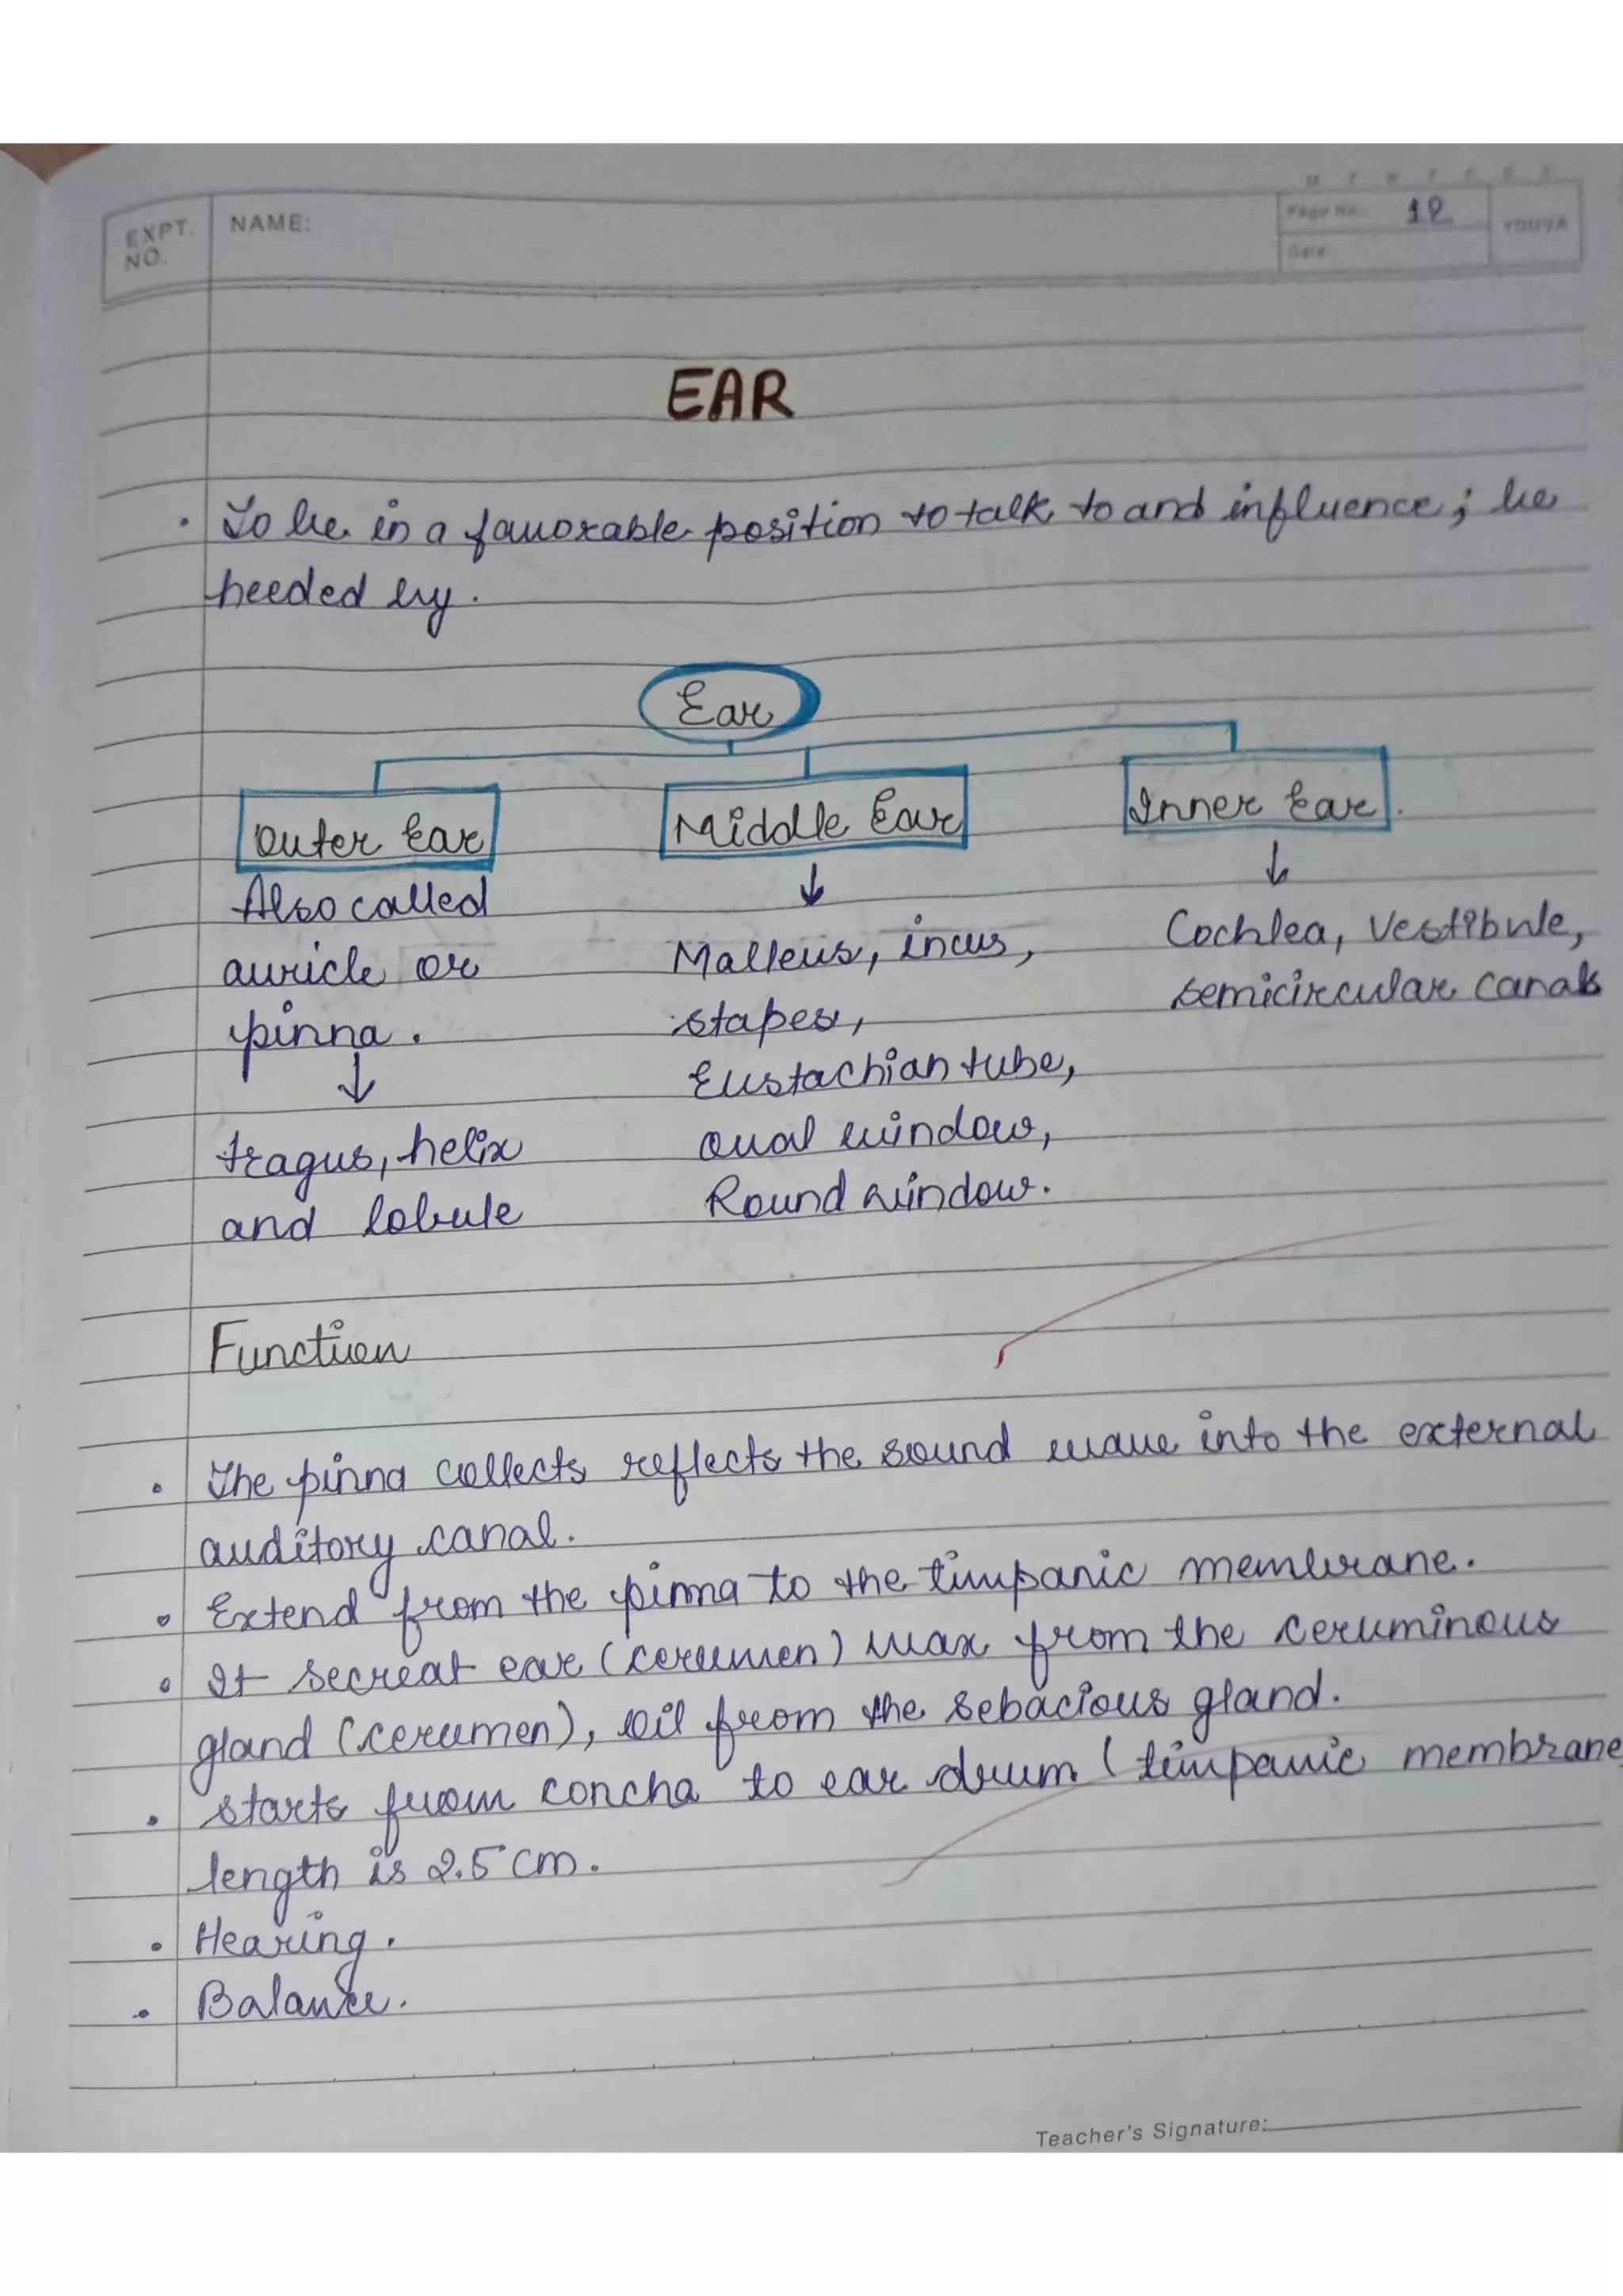 M T W T F S S
EXPT. NO.
NAME:
Page No. 12
Date
YOUVA
EAR
• To be in a favorable position to talk to and influence; be
heeded by.
Ear
Outer Ear
Middle Ear
Inner Ear.
Also called
auricle or
pinna.
↓
tragus, helix
and lobule
↓
Malleus, incus,
stapes,
Eustachian tube,
oval window,
Round window.
↓
Cochlea, Vestibule,
semicircular canals
Function
• The pinna collects reflects the sound wave into the external
auditory canal.
• Extend from the pinna to the timpanic membrane.
• It secreat ear (cerumen) wax from the ceruminous
gland (cerumen), oil from the sebacious gland.
• starts from concha to ear drum (timpanic membrane
length is 2.5 cm.
• Hearing.
• Balance.
Teacher's Signature: